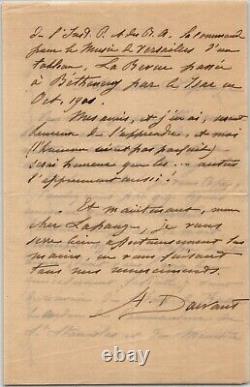 de l'Inst. P. et des B.A. la commande
pour le Musée de Versailles d'un
tableau, La Revue passée
à Bétheny par le Tsar en
Oct. 1901.
Mes amis, et j'en ai, seront
heureux de l'apprendre, et moi
(l'homme n'est pas parfait)
serai heureux que les ... autres
l'apprennent aussi!
Et maintenant, mon
cher Lapauze, je vous
serre bien affectueusement les
mains, en vous faisant
tous mes remerciements.
A. Dawant